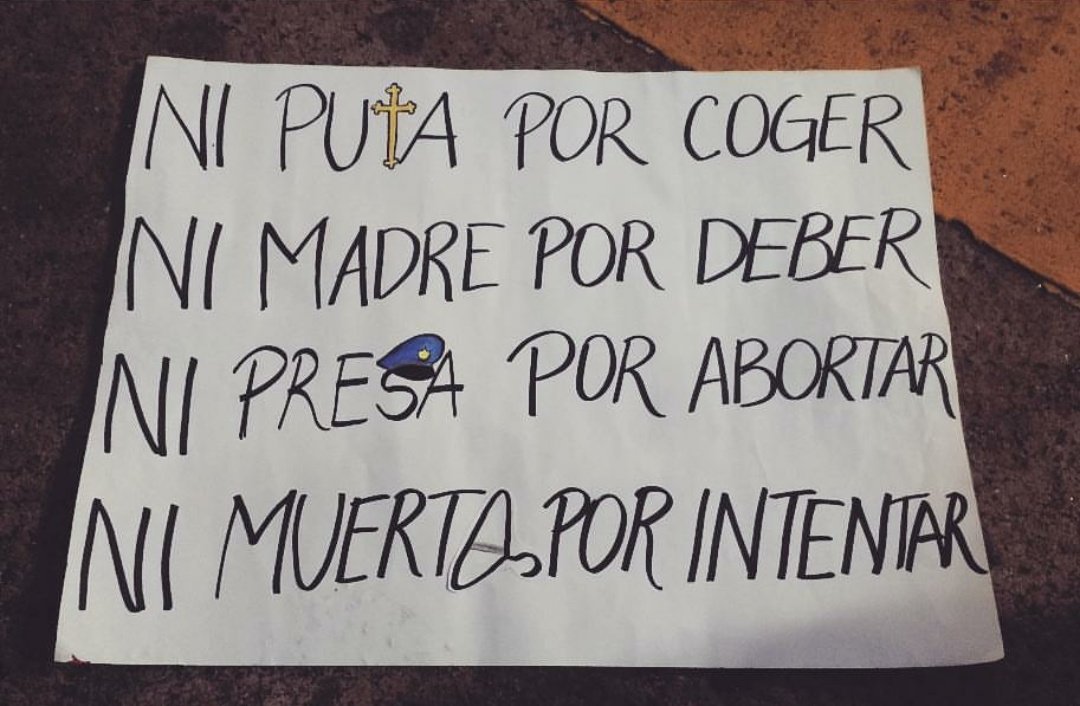 NI PUTA POR COGER
NI MADRE POR DEBER
NI PRESA POR ABORTAR
NI MUERTA POR INTENTAR